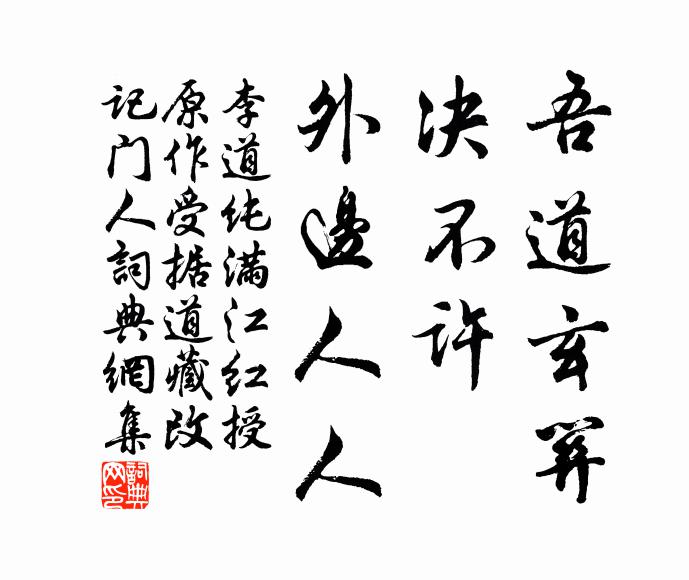 吾道玄关
决不许
外邊人人
李道纯滿江红授
原作受据道藏改
记门人詞典網集
詞典
网印